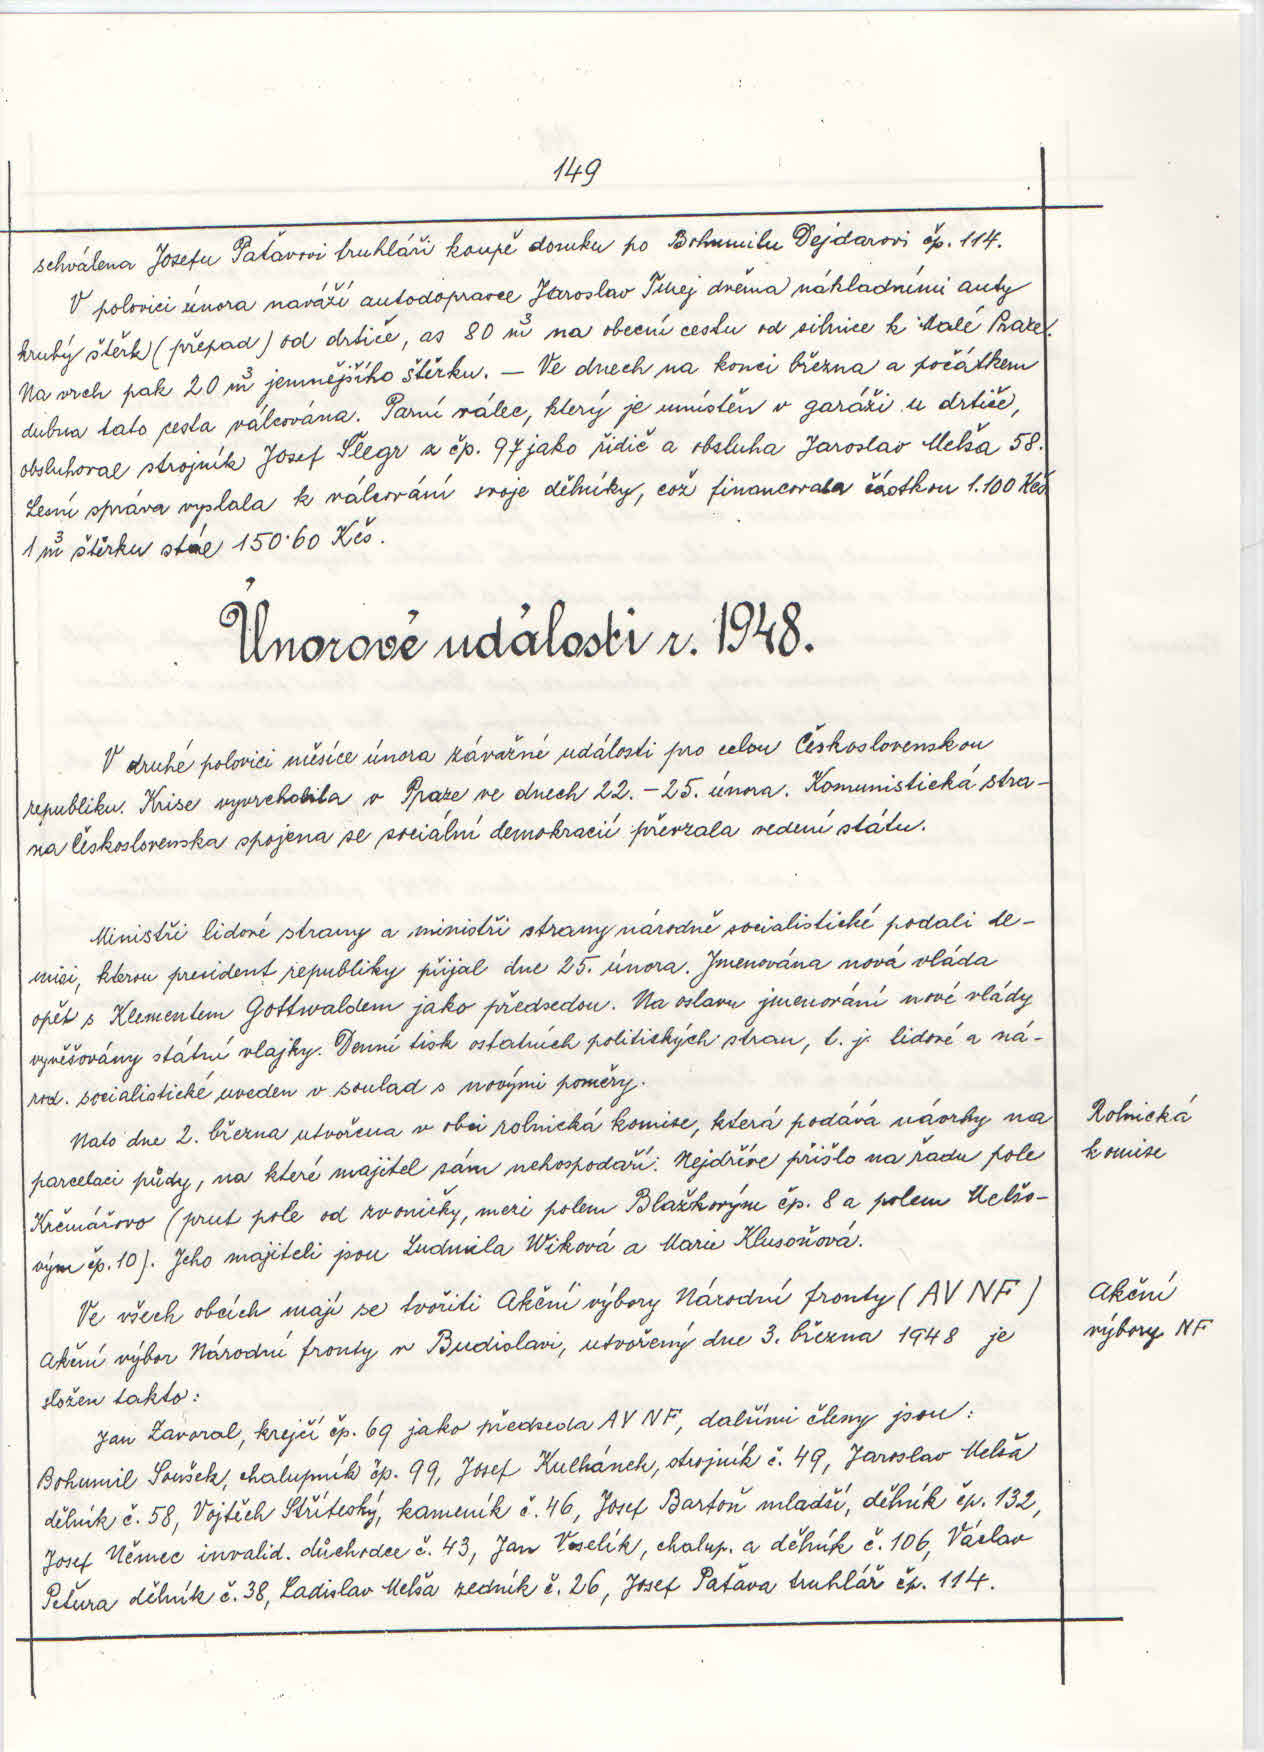 149
schválena Josefu Paťavovi truhláři koupě domku po Bohumilu Dejdarovi čp. 114.
V polovici února naváží autodopravce Jaroslav Tmej dvěma nákladními auty
hrubý štěrk (přepad) od drtiče, as 80 m³ na obecní cestu od silnice k Malé Praze.
Na vrch pak 20 m³ jemnějšího štěrku. — Ve dnech na konci března a počátkem
dubna tato cesta válcována. Parní válec, který je umístěn v garáži u drtiče,
obsluhoval strojník Josef Šlegr z čp. 97 jako řidič a obsluha Jaroslav Melša 58.
Lesní správa vyslala k válcování svoje dělníky, což financovala částkou 1.100 Kčs
1 m³ štěrku stál 150·60 Kčs.
Únorové události r. 1948.
V druhé polovici měsíce února závažné události pro celou Československou
republiku. Krise vyvrcholila v Praze ve dnech 22. – 25. února. Komunistická stra-
na Československa spojena se sociální demokracií převzala vedení státu.
Ministři lidové strany a ministři strany národně socialistické podali de-
misi, kterou president republiky přijal dne 25. února. Jmenována nová vláda
opět s Klementem Gottwaldem jako předsedou. Na oslavu jmenování nové vlády
vyvěšovány státní vlajky. Denní tisk ostatních politických stran, t. j. lidové a ná-
rod. socialistické uveden v soulad s novými poměry.
Nato dne 2. března utvořena v obci rolnická komise, která podává návrhy na
parcelaci půdy, na které majitel sám nehospodaří. Nejdříve přišlo na řadu pole
Krčmářovo (prut pole od zvoničky, mezi polem Blažkovým čp. 8 a polem Melšo-
vým čp. 10). Jeho majiteli jsou Ludmila Wiková a Marie Klusoňová.
Rolnická
komise
Ve všech obcích mají se tvořiti Akční výbory Národní fronty (AV NF)
Akční výbor Národní fronty v Budislavi, utvořený dne 3. března 1948 je
složen takto:
Akční
výbory NF
Jan Zavoral, krejčí čp. 69 jako předseda AV NF, dalšími členy jsou:
Bohumil Soušek, chalupník čp. 99, Josef Kulhánek, strojník č. 49, Jaroslav Melša
dělník č. 58, Vojtěch Stříteský, kameník č. 46, Josef Bartoň mladší, dělník čp. 132,
Josef Němec invalid. důchodce č. 43, Jan Veselík, chalup. a dělník č. 106, Václav
Peťura dělník č. 38, Ladislav Melša zedník č. 26, Josef Paťava truhlář čp. 114.